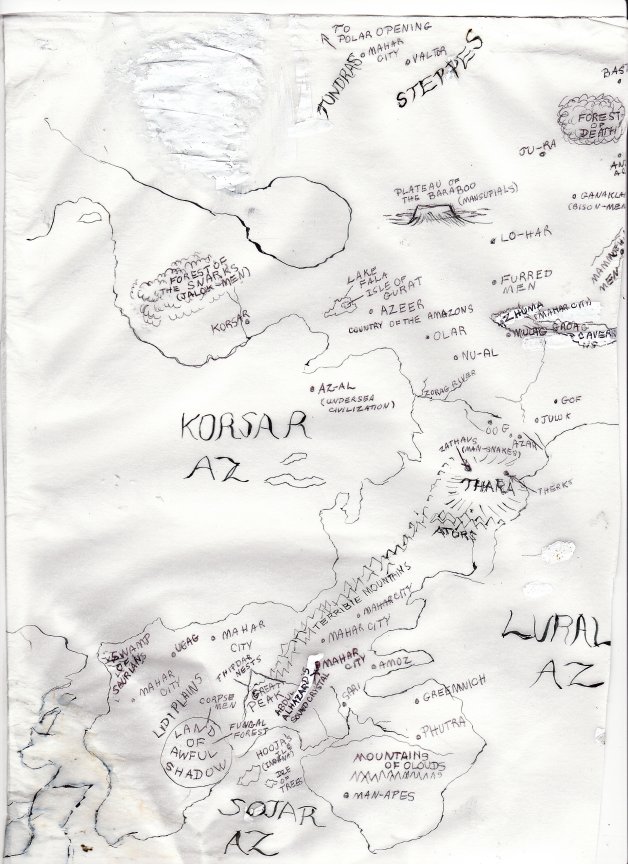 TO
POLAR OPENING
MAHAR
CITY
VALTOR
TUNDRAS
STEPPES
BAST
FOREST
OF
DEATH
JU-RA
GANAKLA
(BISON-MEN
PLATEAU OF
THE BARABOO
(MARSUPIALS)
LO-HAR
FOREST OF
THE SNARKS
(JALOK-MEN)
LAKE
FALA
ISLE OF
GURAT
FURRED
MEN
AZEER
KORSAR
COUNTRY OF THE AMAZONS
ZHUMA
(MAHAR CITY)
CAVERNS
OLAR
NU-AL
AZ-AL
(UNDERSEA
CIVILIZATION)
ZORAG RIVER
GOF
JULOK
OOG
AZAR
KORSAR
AZ
(MAN-SNAKES)
THARA
THERKS
ATORS
TERRIBLE MOUNTAINS
MAHAR CITY
MAHAR CITY
LURAL
AZ
SWAMP
OF
UGAG
MAHAR
CITY
MAHAR
CITY
MAHAR
CITY
THIPDAR
NESTS
AMOZ
GREAT
PEAK
ABDUL
ALHAZARD'S
SOUND CRYSTAL
SARI
GREENWICH
LIDI PLAINS
CORPSE
MEN
FUNGAL
FOREST
PHUTRA
LAND
OF
AWFUL
SHADOW
HOOJA'S
ISLE
(INDIANA)
ISLE
OF
TREES
MOUNTAINS
OF CLOUDS
MAN-APES
SOJAR
AZ